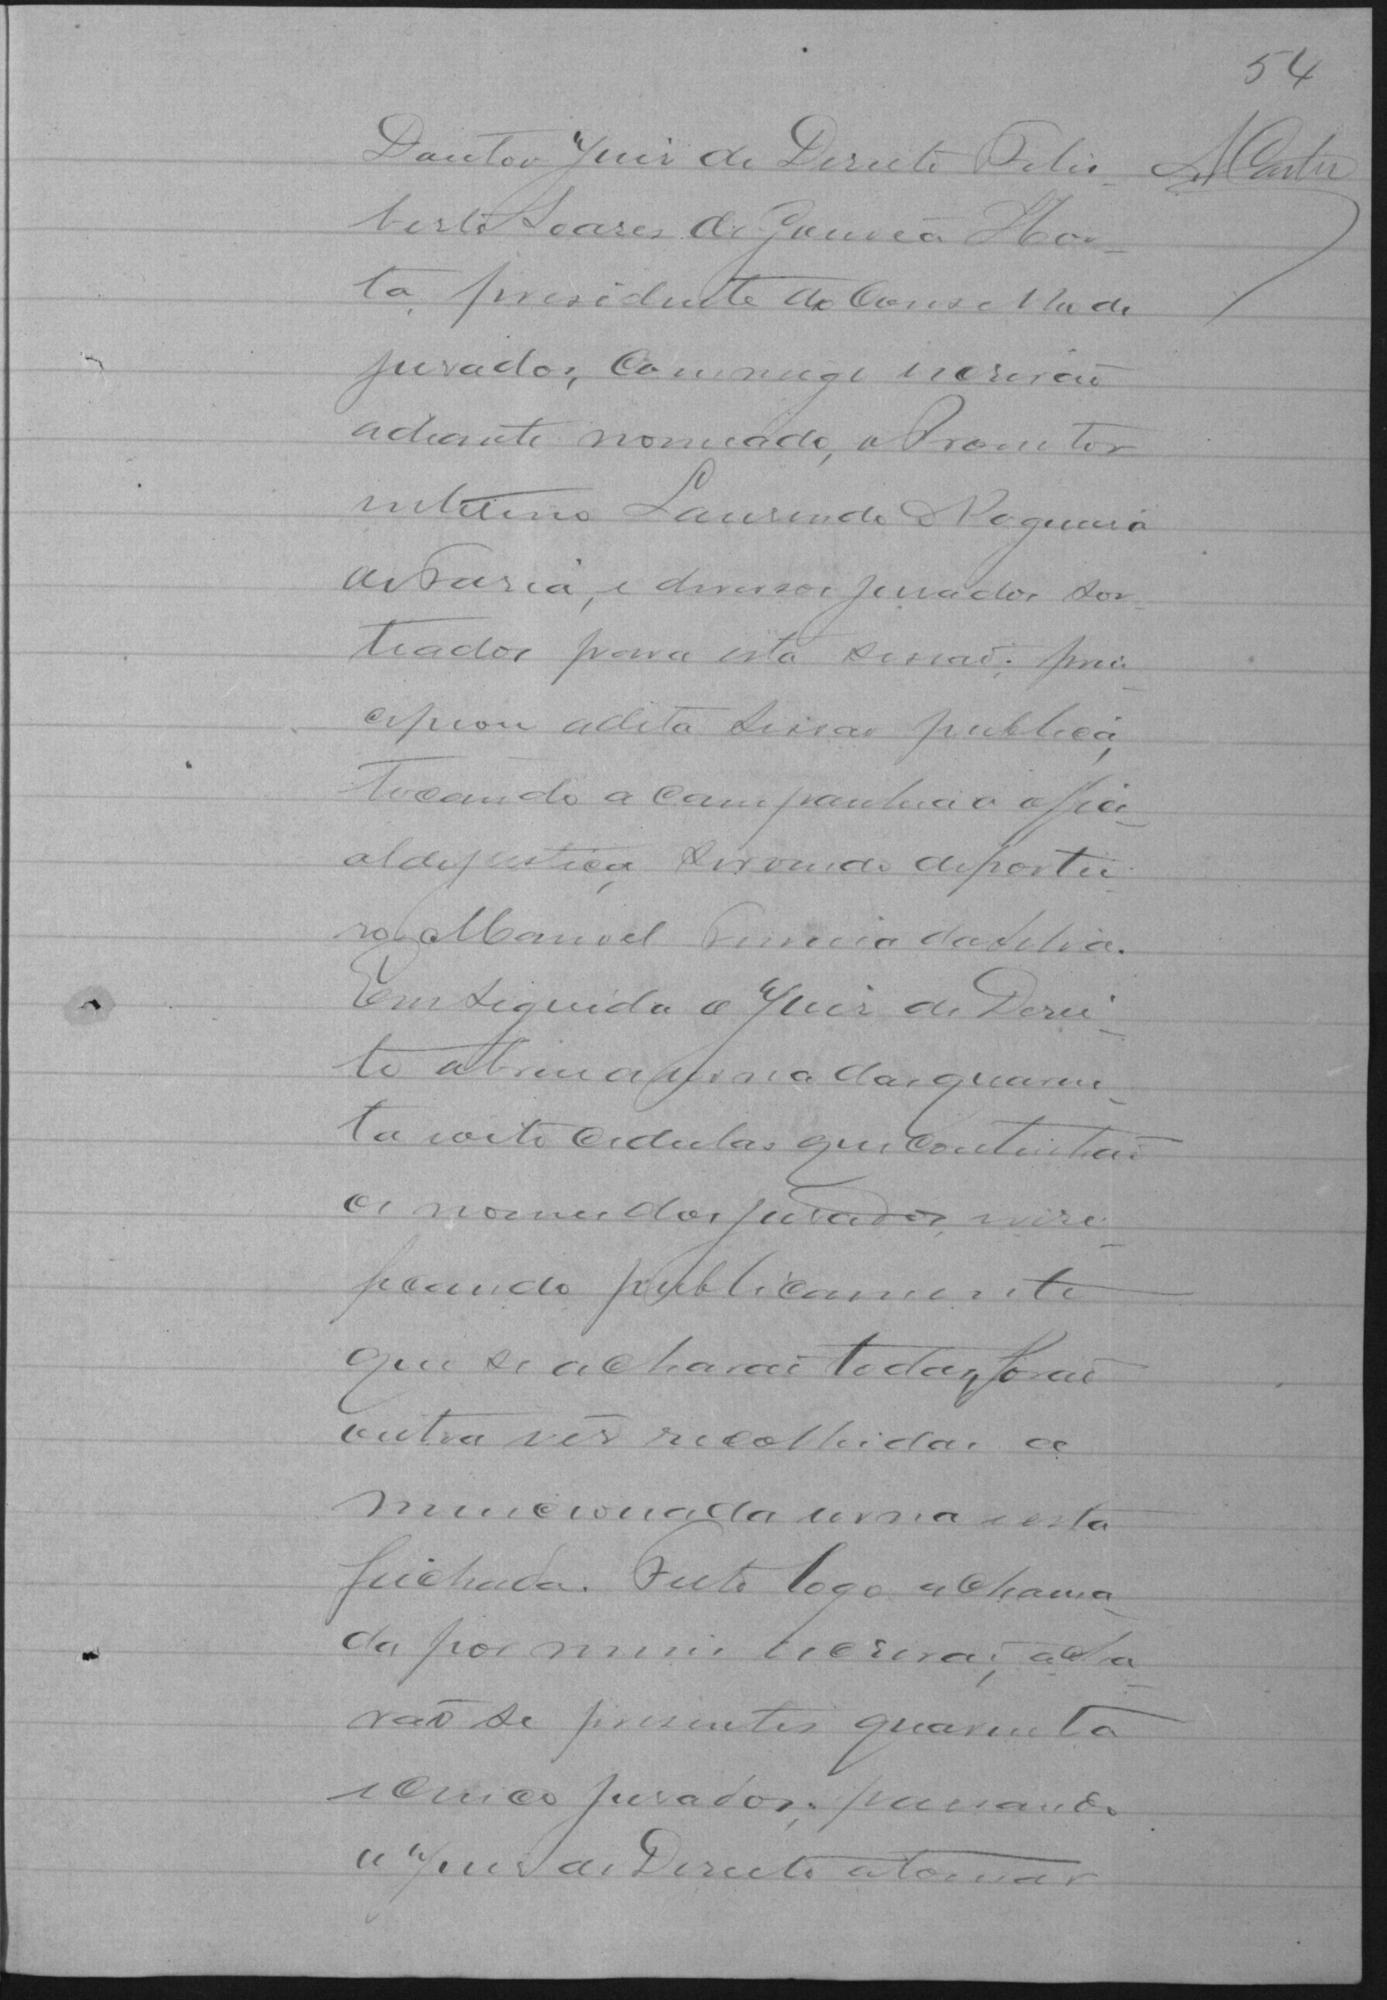 54
Doutor Juiz de Direito Felis-
berto Soares de Gouvêa Hor-
ta, presidente do Conselho de
jurados, commigo escrivão
adiante nomeado, o Promotor
interino Laurindo Nogueira
de Faria, e diversos jurados sor-
teados para esta sessão; prin-
cipiou a dita sessão publica,
tocando a campanhia o offici-
al de justiça, servindo de portei-
ro, Manoel da Silva.
Em seguida o Juiz de Direi-
to abrio a urna das quaren-
ta e oito cedulas que continhão
os nomes dos jurados, veri-
ficando publicamente
que se achavão todas, forão
outra vez recolhidas a
mencionada urna e esta
fechada. Feita logo a chama-
da por mim escrivão, acha-
rão se presentes quarenta
e cinco jurados; passando
o Juiz de Direito a tomar